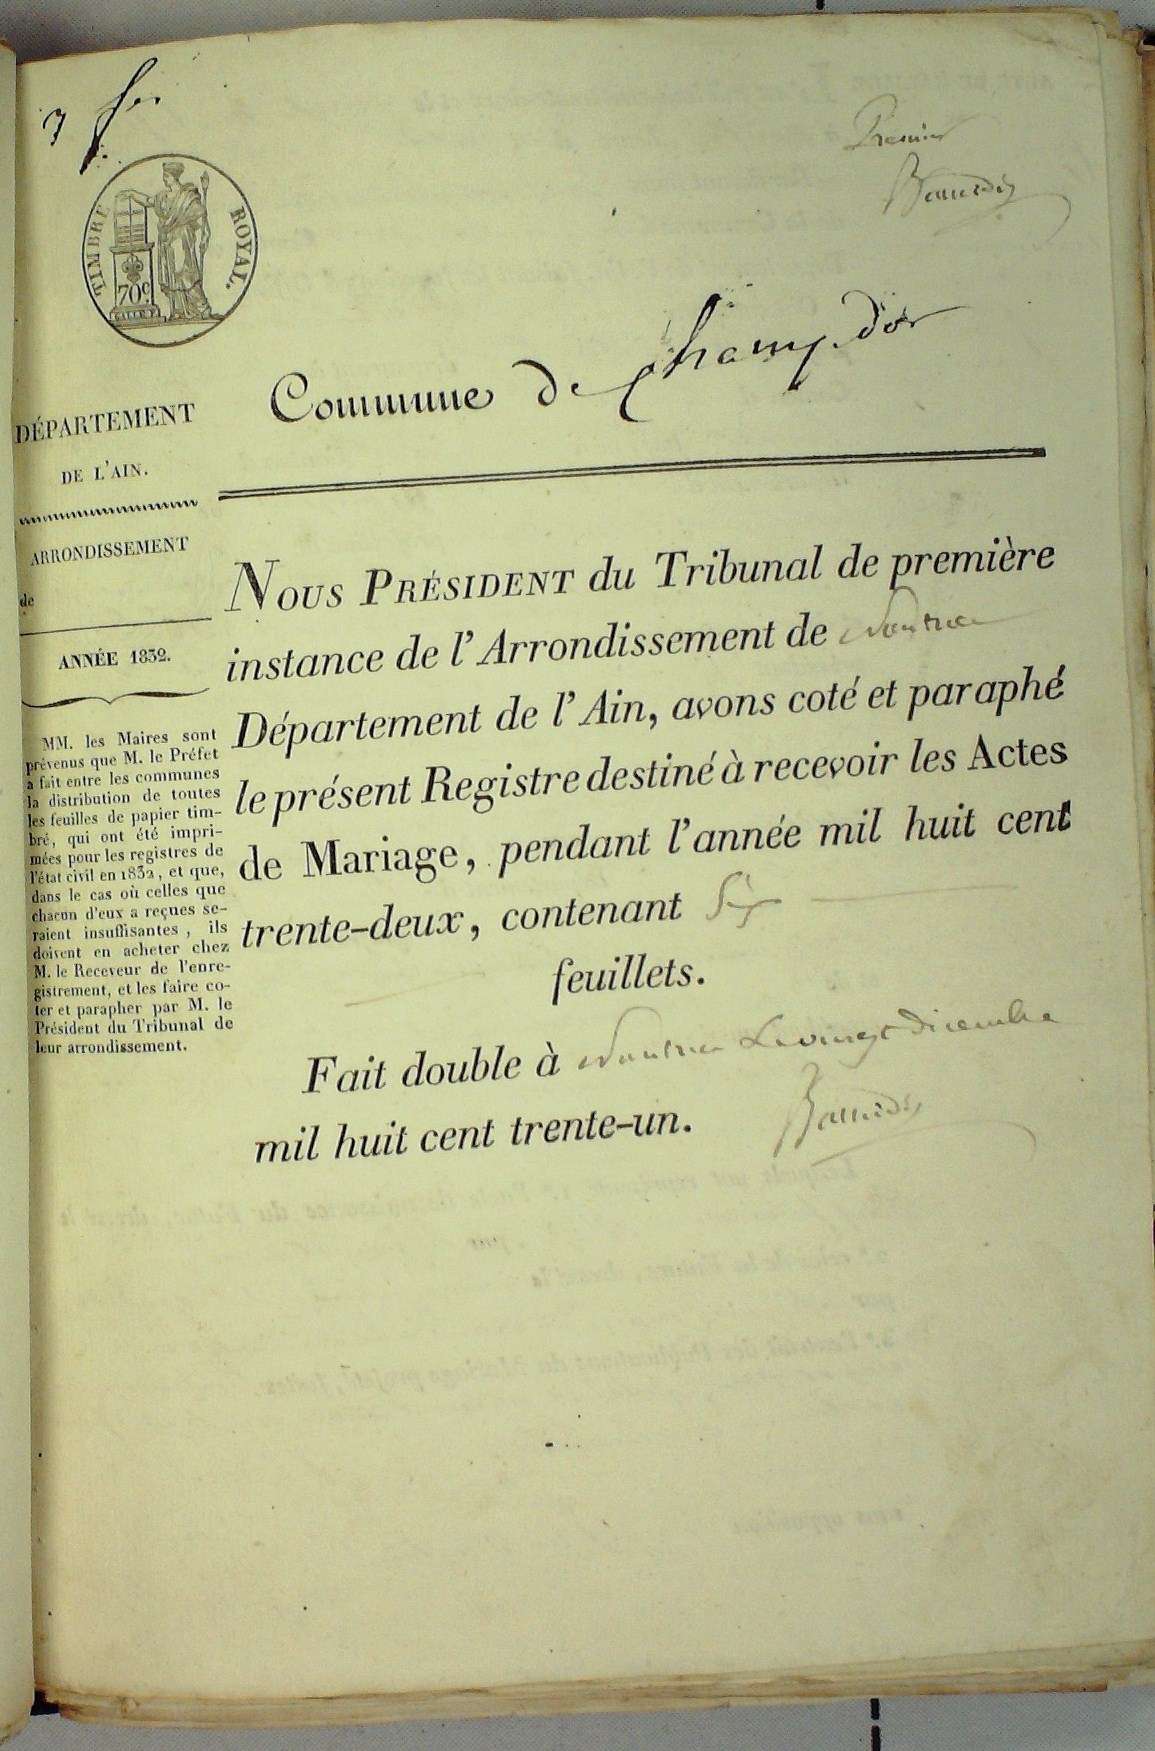 3 f.
Premier
TIMBRE ROYAL.
70c
Commune de Champ-d'or
DÉPARTEMENT
DE L'AIN.
ARRONDISSEMENT
de
ANNÉE 1832.
MM. les Maires sont
prévenus que M. le Préfet
a fait entre les communes
la distribution de toutes
les feuilles de papier tim-
bré, qui ont été impri-
mées pour les registres de
l'état civil en 1832, et que,
dans le cas où celles que
chacun d'eux a reçues se-
raient insuffisantes, ils
doivent en acheter chez
M. le Receveur de l'enre-
gistrement, et les faire co-
ter et parapher par M. le
Président du Tribunal de
leur arrondissement.
NOUS PRÉSIDENT du Tribunal de première
instance de l'Arrondissement de Nantua
Département de l'Ain, avons coté et paraphé
le présent Registre destiné à recevoir les Actes
de Mariage, pendant l'année mil huit cent
trente-deux, contenant Six
feuillets.
Fait double à Nantua Le vingt Décembre
mil huit cent trente-un.